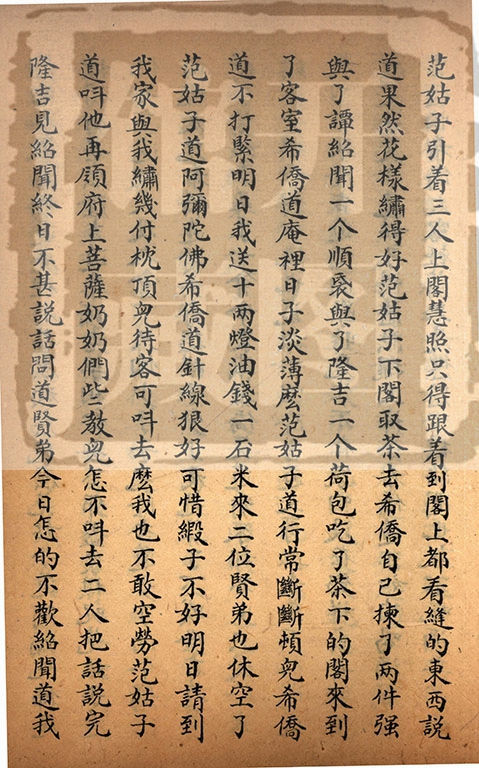 范姑子引着三人上閣慧照只得跟着到閣上都看縫的東西說
道果然花樣繡得好范姑子下閣取茶去希僑自己揀了兩件强
與了譚紹聞一个順袋與了隆吉一个荷包吃了茶下的閣來到
了客室希僑道庵裡日子淡薄麽范姑子道行常斷斷頓兒希僑
道不打緊明日我送十兩燈油錢一石米來二位賢弟也休空了
范姑子道阿彌陀佛希僑道針線狠好可惜緞子不好明日請到
我家與我繡幾付枕頂兒待客可呌去麽我也不敢空勞范姑子
道呌他再領府上菩薩奶奶們些教兒怎不呌去二人把話說完
隆吉見紹聞終日不甚說話問道賢弟今日怎的不歡紹聞道我